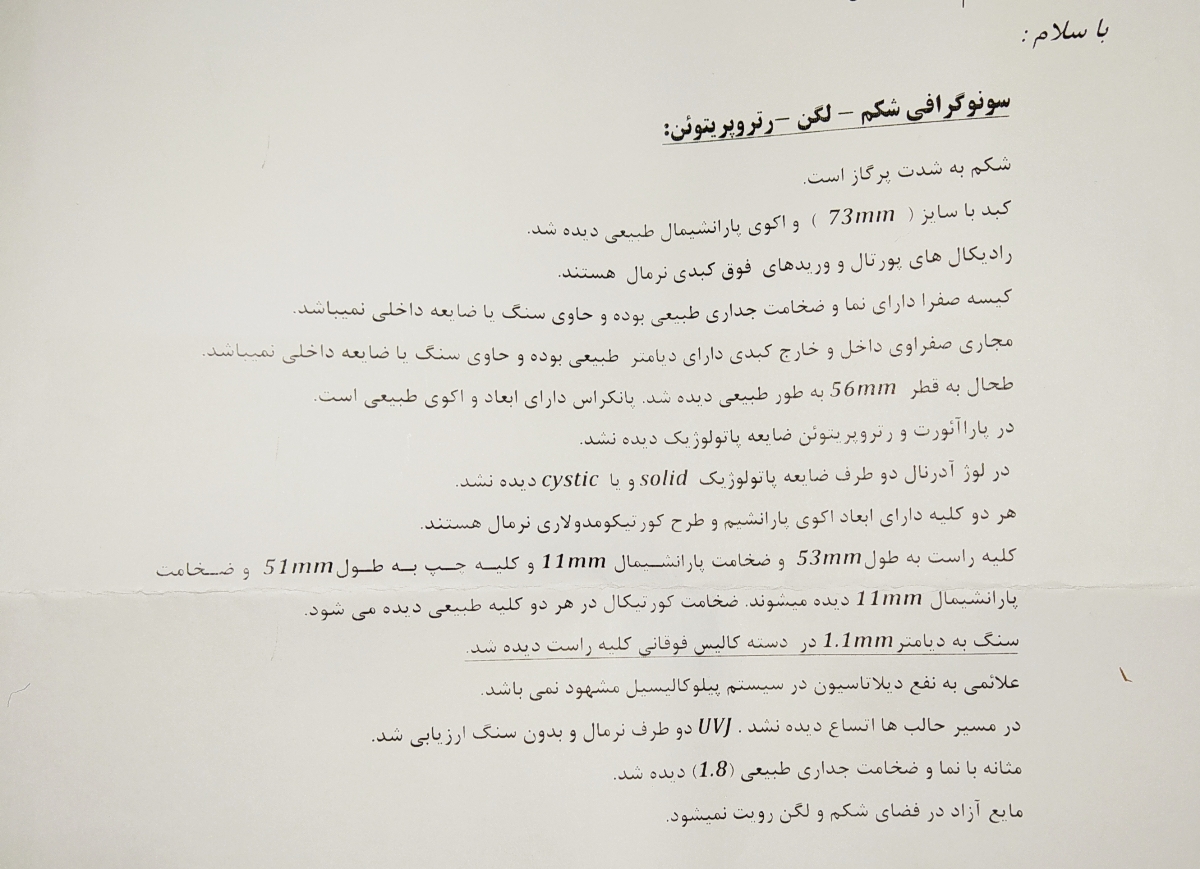 با سلام :
سونوگرافی شکم – لگن –رتروپریتوئن:
شکم به شدت پرگاز است.
کبد با سایز ( 73mm ) و اکوی پارانشیمال طبیعی دیده شد.
رادیکال های پورتال و وریدهای فوق کبدی نرمال هستند.
کیسه صفرا دارای نما و ضخامت جداری طبیعی بوده و حاوی سنگ یا ضایعه داخلی نمیباشد.
مجاری صفراوی داخل و خارج کبدی دارای دیامتر طبیعی بوده و حاوی سنگ یا ضایعه داخلی نمیباشد.
طحال به قطر 56mm به طور طبیعی دیده شد. پانکراس دارای ابعاد و اکوی طبیعی است.
در پاراآئورت و رتروپریتوئن ضایعه پاتولوژیک دیده نشد.
در لوژ آدرنال دو طرف ضایعه پاتولوژیک solid و یا cystic دیده نشد.
هر دو کلیه دارای ابعاد اکوی پارانشیم و طرح کورتیکومدولاری نرمال هستند.
کلیه راست به طول 53mm و ضخامت پارانشـیمال 11mm و کلیــه چــپ بــه طــول 51mm و ضــخامت
پارانشیمال 11mm دیده میشوند. ضخامت کورتیکال در هر دو کلیه طبیعی دیده می شود.
سنگ به دیامتر 1.1mm در دسته کالیس فوقانی کلیه راست دیده شد.
علائمی به نفع دیلاتاسیون در سیستم پیلوکالیسیل مشهود نمی باشد.
در مسیر حالب ها اتساع دیده نشد . UVJ دو طرف نرمال و بدون سنگ ارزیابی شد.
مثانه با نما و ضخامت جداری طبیعی (1.8) دیده شد.
مایع آزاد در فضای شکم و لگن رویت نمیشود.